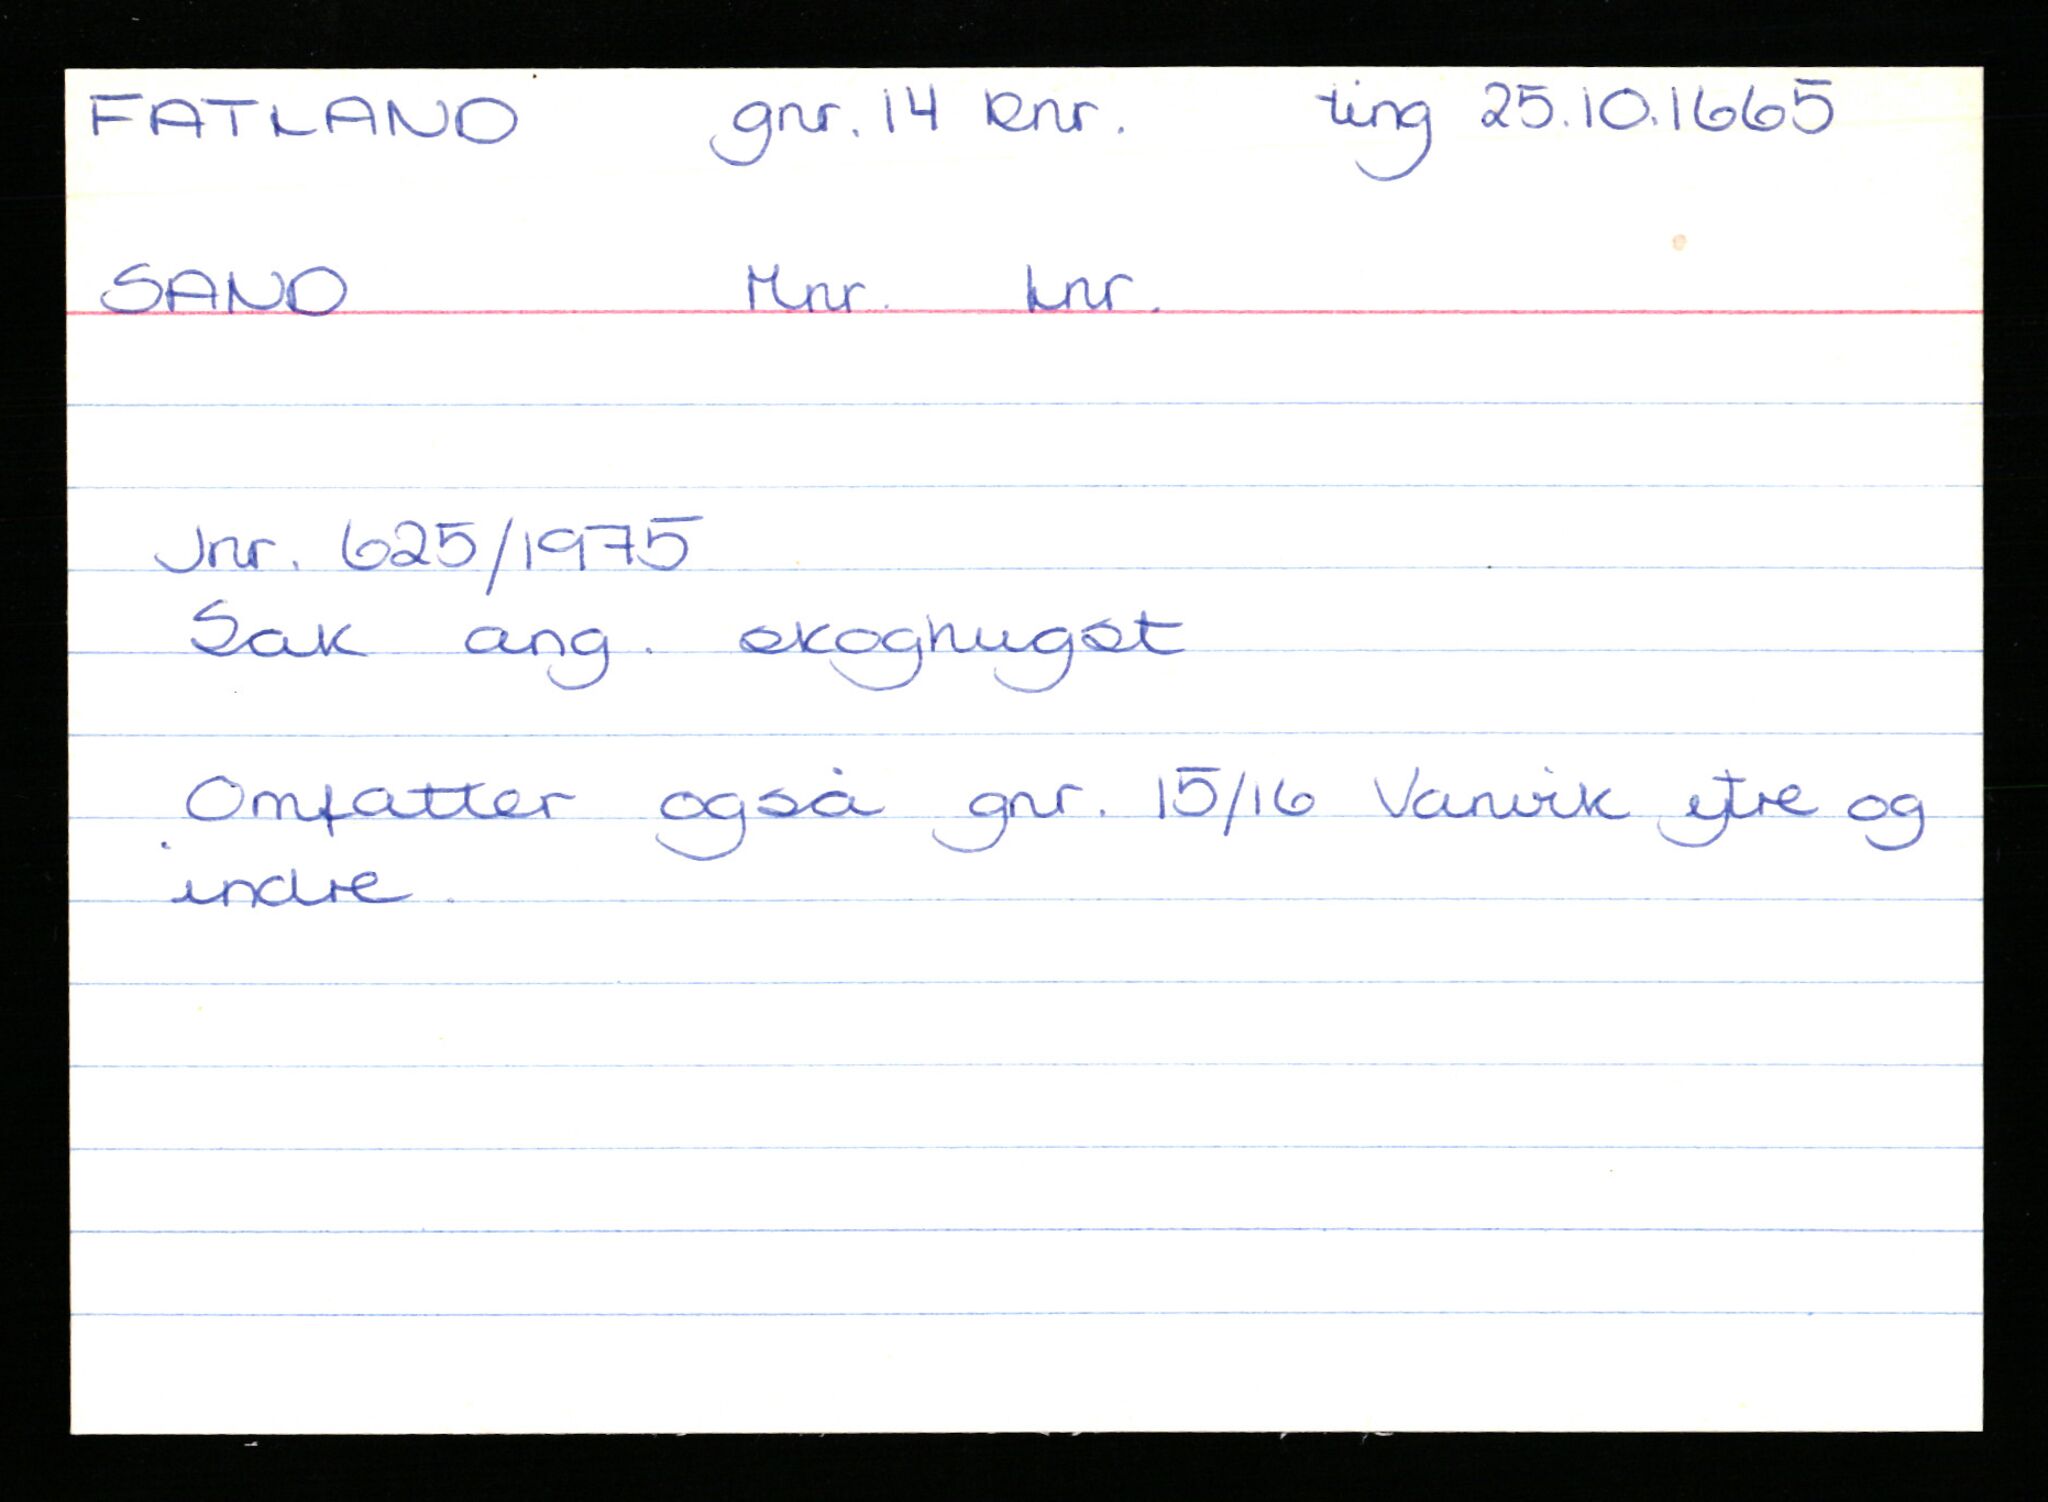 FATLAND gnr. 14 bnr. ting 25.10.1665
SAND Mnr. lnr.
Jnr. 625/1975
Sak ang. skoghugst
Omfatter også gnr. 15/16 Varvik ytre og
indre.